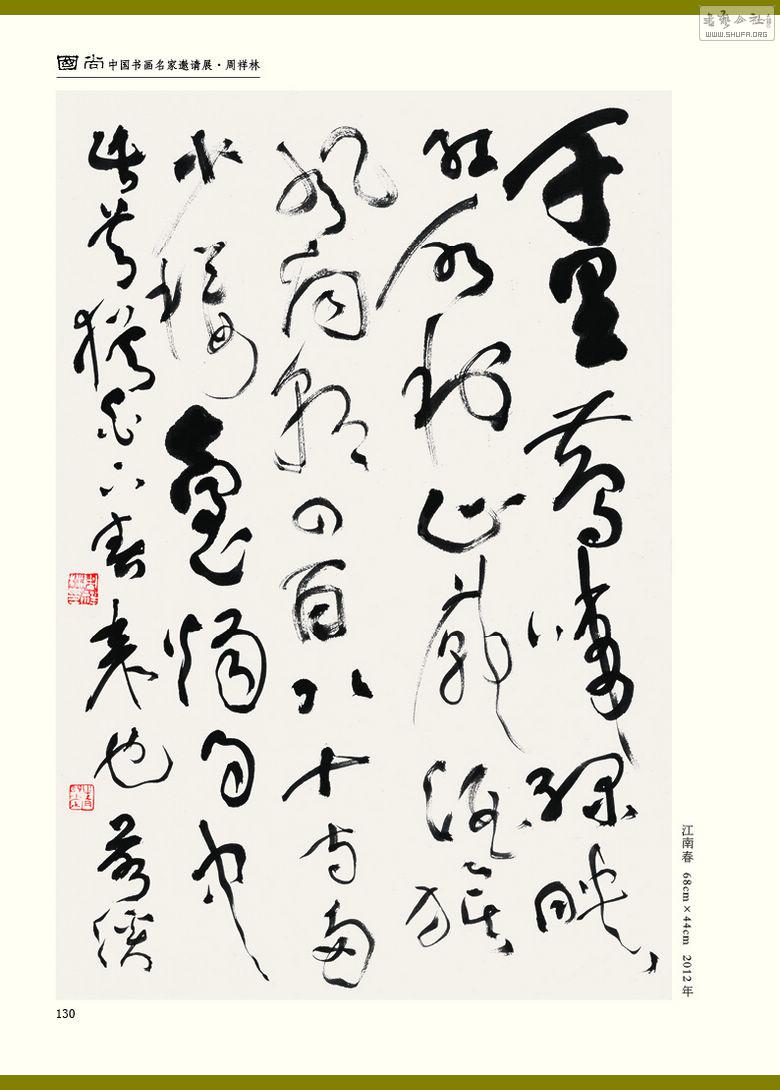 書藝公社
WWW.SHUFA.ORG
國尚 中国书画名家邀请展·周祥林
千里鶯啼綠映
紅水村山郭酒旗
風南朝四百八十寺多
少樓臺烟雨中
也
江南春 68cm×44cm 2012年
130